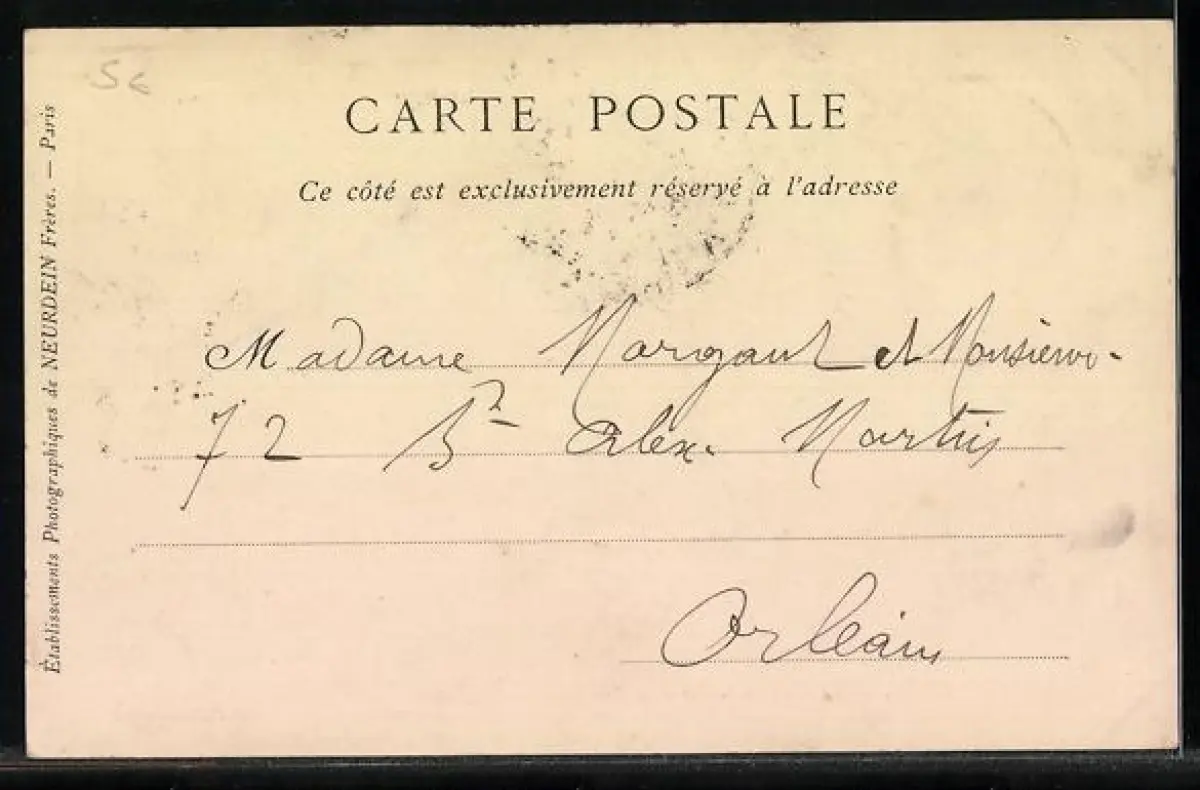 5€
CARTE POSTALE
Ce côté est exclusivement réservé à l'adresse
Établissements Photographiques de NEURDEIN Frères. — Paris
Madame Margault et Monsieur
72 Bd Alex. Martin
Orléans